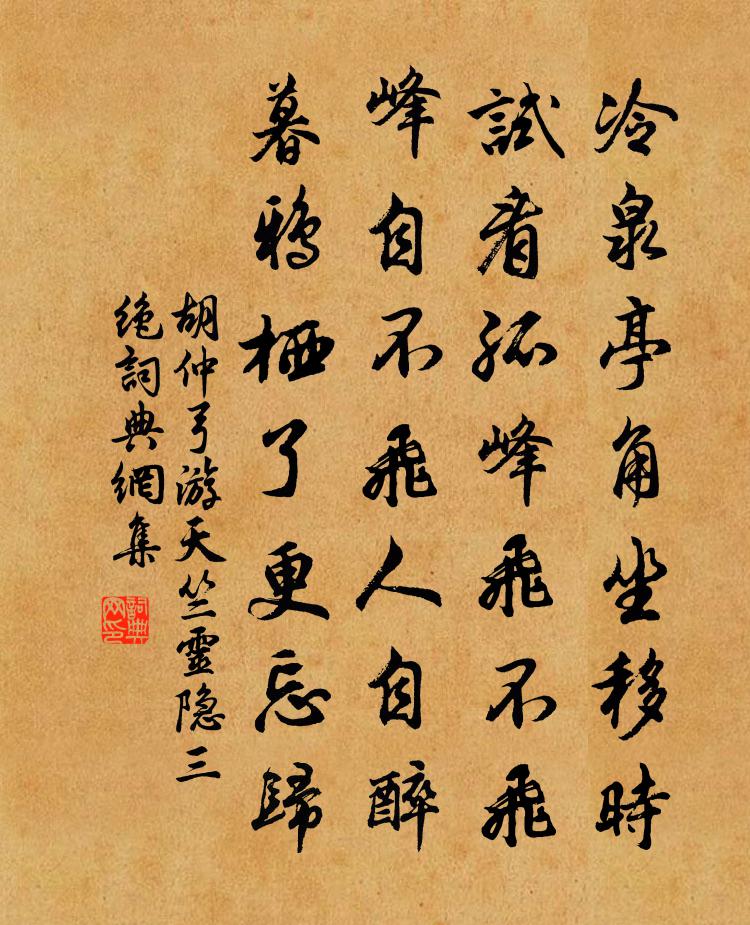 冷泉亭角坐移時
試看孤峰飛不飛
峰自不飛人自醉
暮鴉栖了更忘歸
胡仲弓游天竺靈隐三
絶詞典網集
詞典
网印